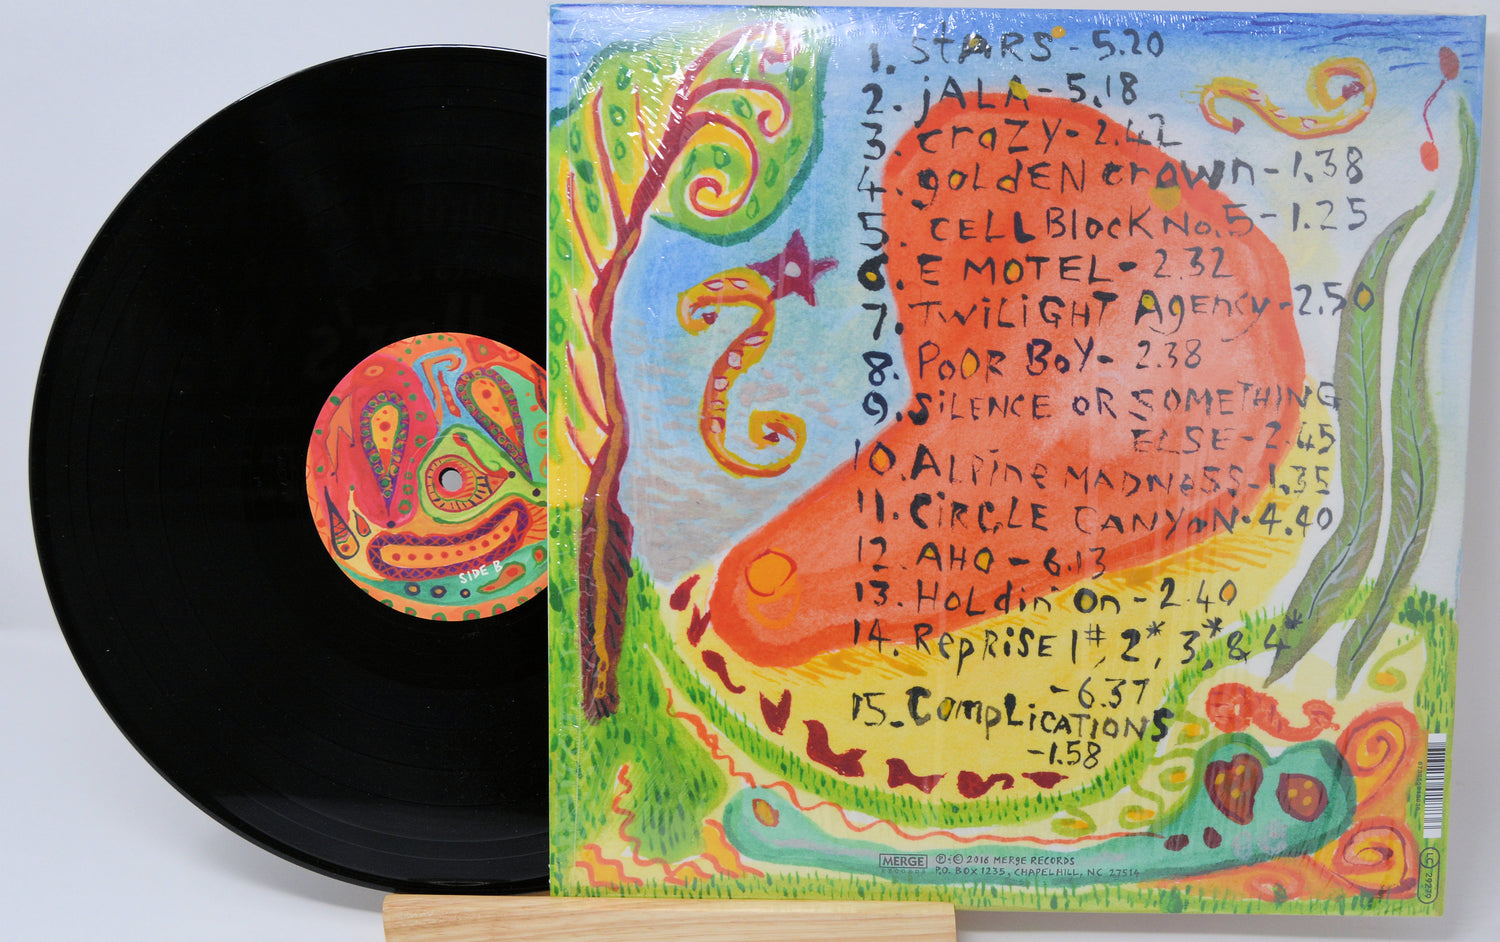 1. STARS - 5.20
2. jALA - 5.18
3. crazy - 2.42
4. goldEN crown - 1.38
5. CELL Block No. 5 - 1.25
6. E MOTEL - 2.32
7. TWiLiGHT Agency - 2.50
8. POOR BoY - 2.38
9. SiLENCE OR SOMETHING
ELSE - 2.45
10. ALpine MADNeSS - 1.35
11. CiRCLE CANYoN - 4.40
12. AHO - 6.13
13. HoLdin' On - 2.40
14. RepRiSE 1#, 2*, 3*, & 4*
- 6.37
15. CompLiCATIONS
- 1.58
SIDE B
MERGE
RECORDS
℗·© 2016 MERGE RECORDS
P.O. BOX 1235, CHAPELHILL, NC 27514
LC
29239